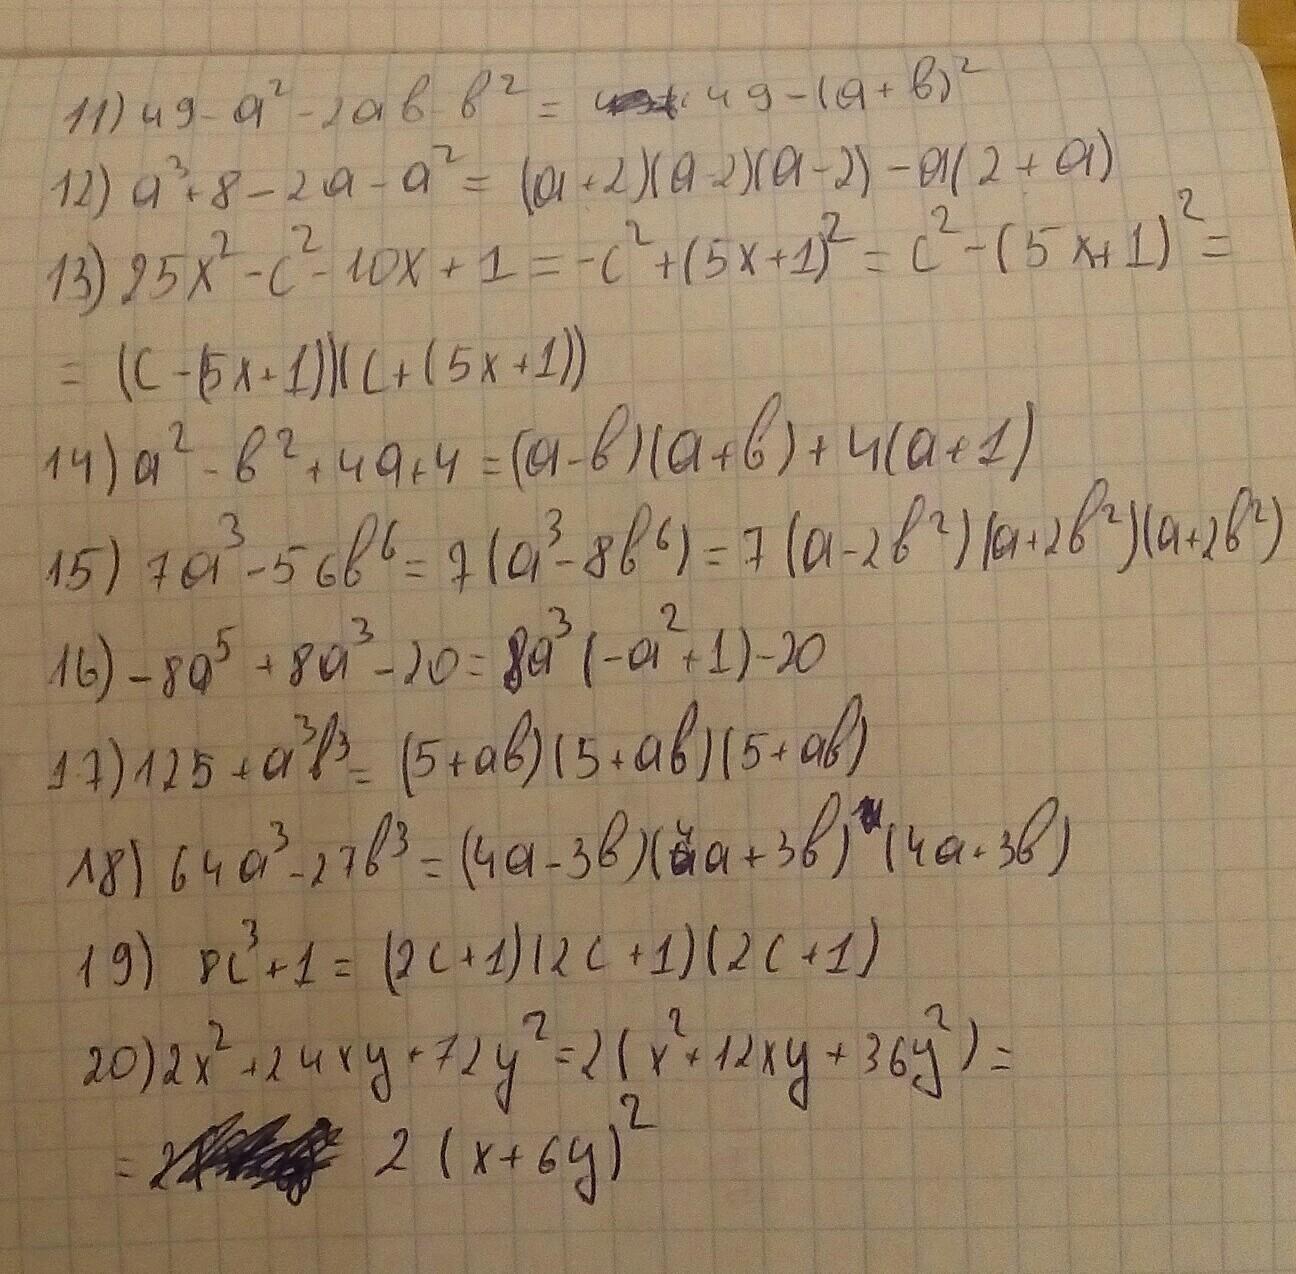 11) 49 - a² - 2ab - b² = 49 - (a + b)²
12) a³ + 8 - 2a - a² = (a + 2)(a - 2)(a - 2) - a(2 + a)
13) 25x² - c² - 10x + 1 = -c² + (5x + 1)² = c² - (5x + 1)² =
= (c - (5x + 1))(c + (5x + 1))
14) a² - b² + 4a + 4 = (a - b)(a + b) + 4(a + 1)
15) 7a³ - 56b⁶ = 7(a³ - 8b⁶) = 7(a - 2b²)(a + 2b²)(a + 2b²)
16) -8a⁵ + 8a³ - 20 = 8a³(-a² + 1) - 20
17) 125 + a³b³ = (5 + ab)(5 + ab)(5 + ab)
18) 64a³ - 27b³ = (4a - 3b)(4a + 3b)(4a + 3b)
19) 8c³ + 1 = (2c + 1)(2c + 1)(2c + 1)
20) 2x² + 24xy + 72y² = 2(x² + 12xy + 36y²) =
= 2(x + 6y)²